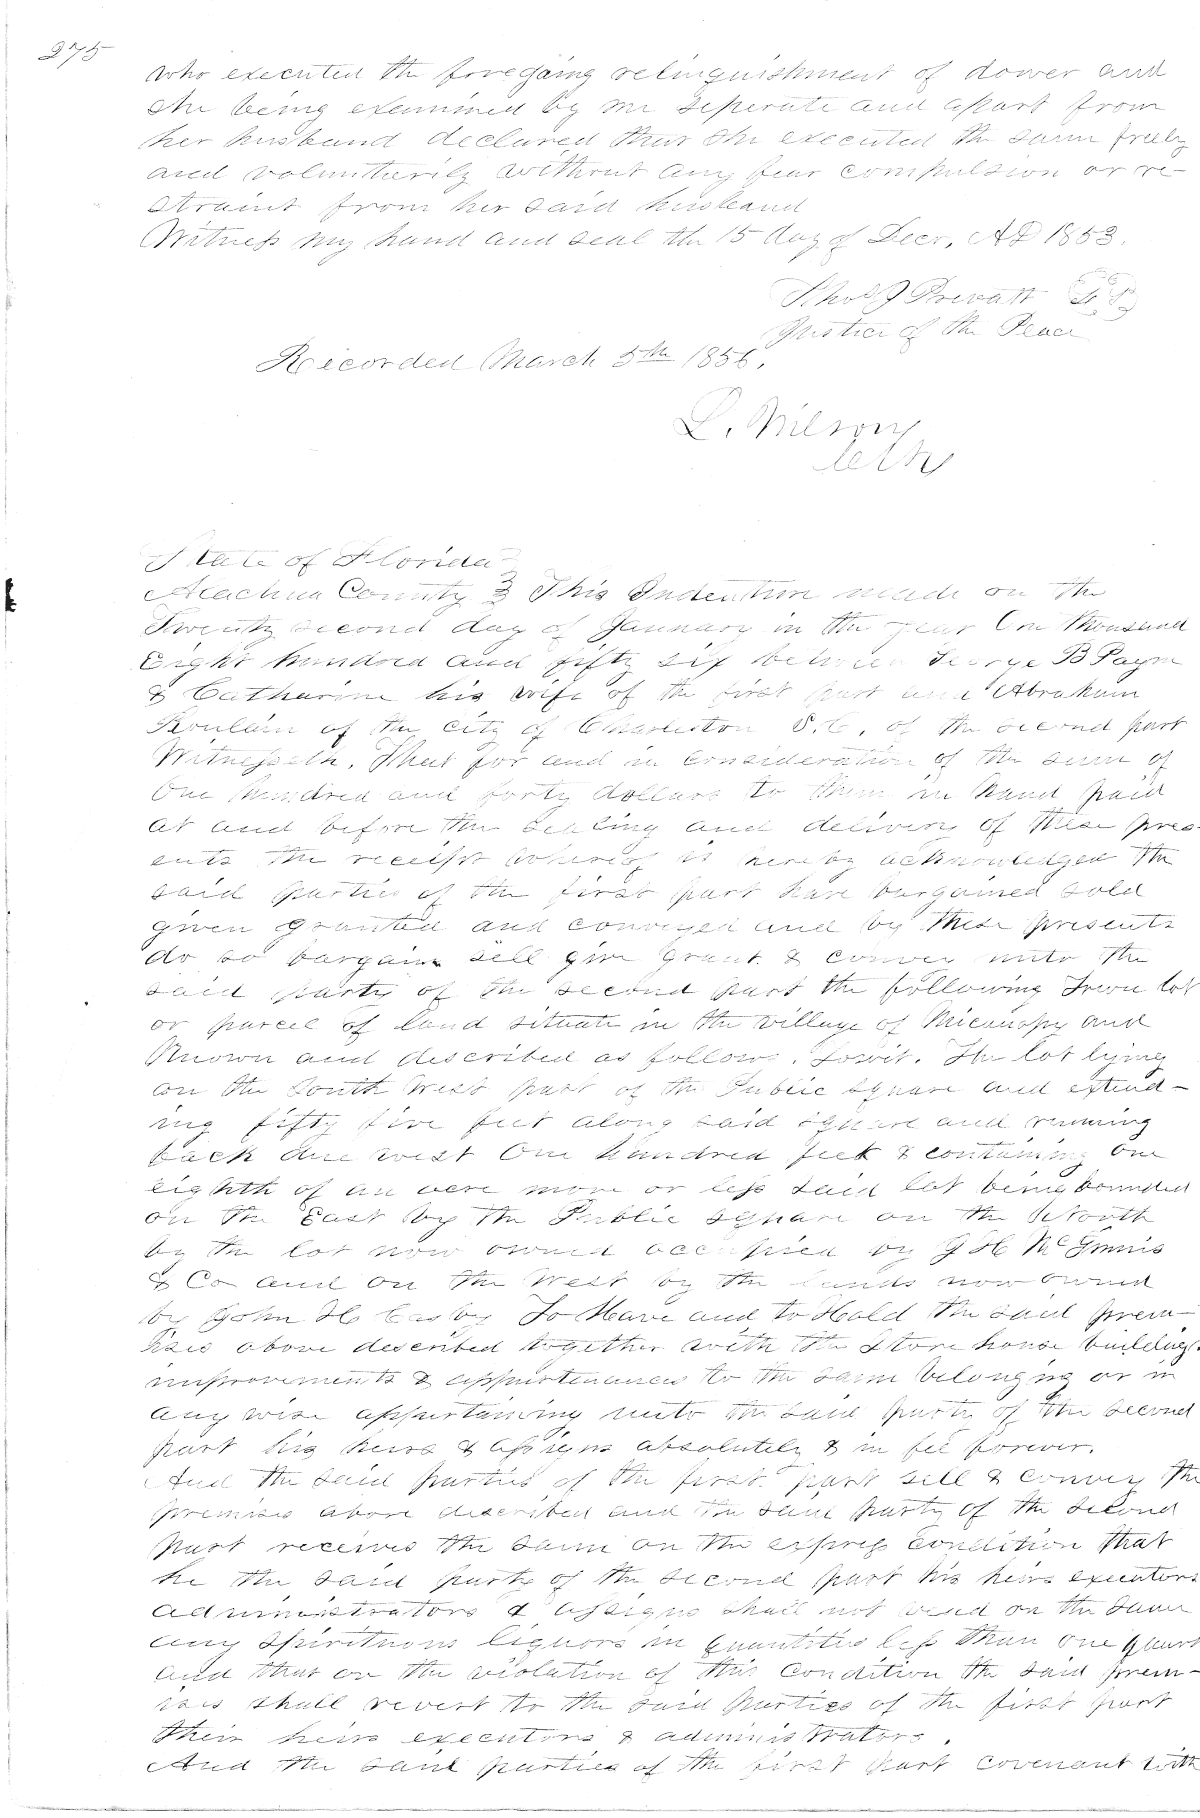 275
who executed the foregoing relinquishment of dower and
she being examined by me seperate and apart from
her husband declared that she executed the same freely
and voluntarily without any fear compulsion or re-
straint from her said husband
Witness my hand and seal the 15 day of Decr, AD 1853.
Thos J Prevatt
Justice of the Peace
Recorded March 5th 1856.
L. Wilson
Clk
State of Florida
Alachua County } This Indenture made on the
Twenty second day of January in the year One thousand
Eight hundred and fifty six between George B Payne
& Catharine his wife of the first part and Abraham
of the city of Charleston S.C. of the second part
Witnesseth. That for and in consideration of the sum of
One hundred and forty dollars to them in hand paid
at and before the sealing and delivery of these pres-
ents the receipt whereof is hereby acknowledged the
said parties of the first part have bargained sold
given granted and conveyed and by these presents
do so bargain sell give grant & convey unto the
said party of the second part the following Town lot
or parcel of land situate in the village of Micanopy and
Known and described as follows. Towit. The lot lying
on the South West part of the Public square and extend-
ing fifty five feet along said square and running
back due west One hundred feet & containing one
eighth of an acre more or less said lot being bounded
on the East by the Public square on the North
by the lot now owned occupied by J H McGinnis
& Co and on the West by the lands now owned
by John H To Have and to Hold the said prem-
ises above described together with the Store house buildings
improvements & appurtenances to the same belonging or in
any wise appertaining unto the said party of the second
part his heirs & assigns absolutely & in fee forever.
And the said parties of the first part sell & convey the
premises above described and the said party of the second
part receives the same on the express condition that
he the said party of the second part his heirs executors
administrators & assigns shall not vend on the same
any spirituous liquors in quantities less than one quart
and that on the violation of this condition the said prem-
ises shall revert to the said parties of the first part
their heirs executors & administrators.
And the said parties of the first part covenant with